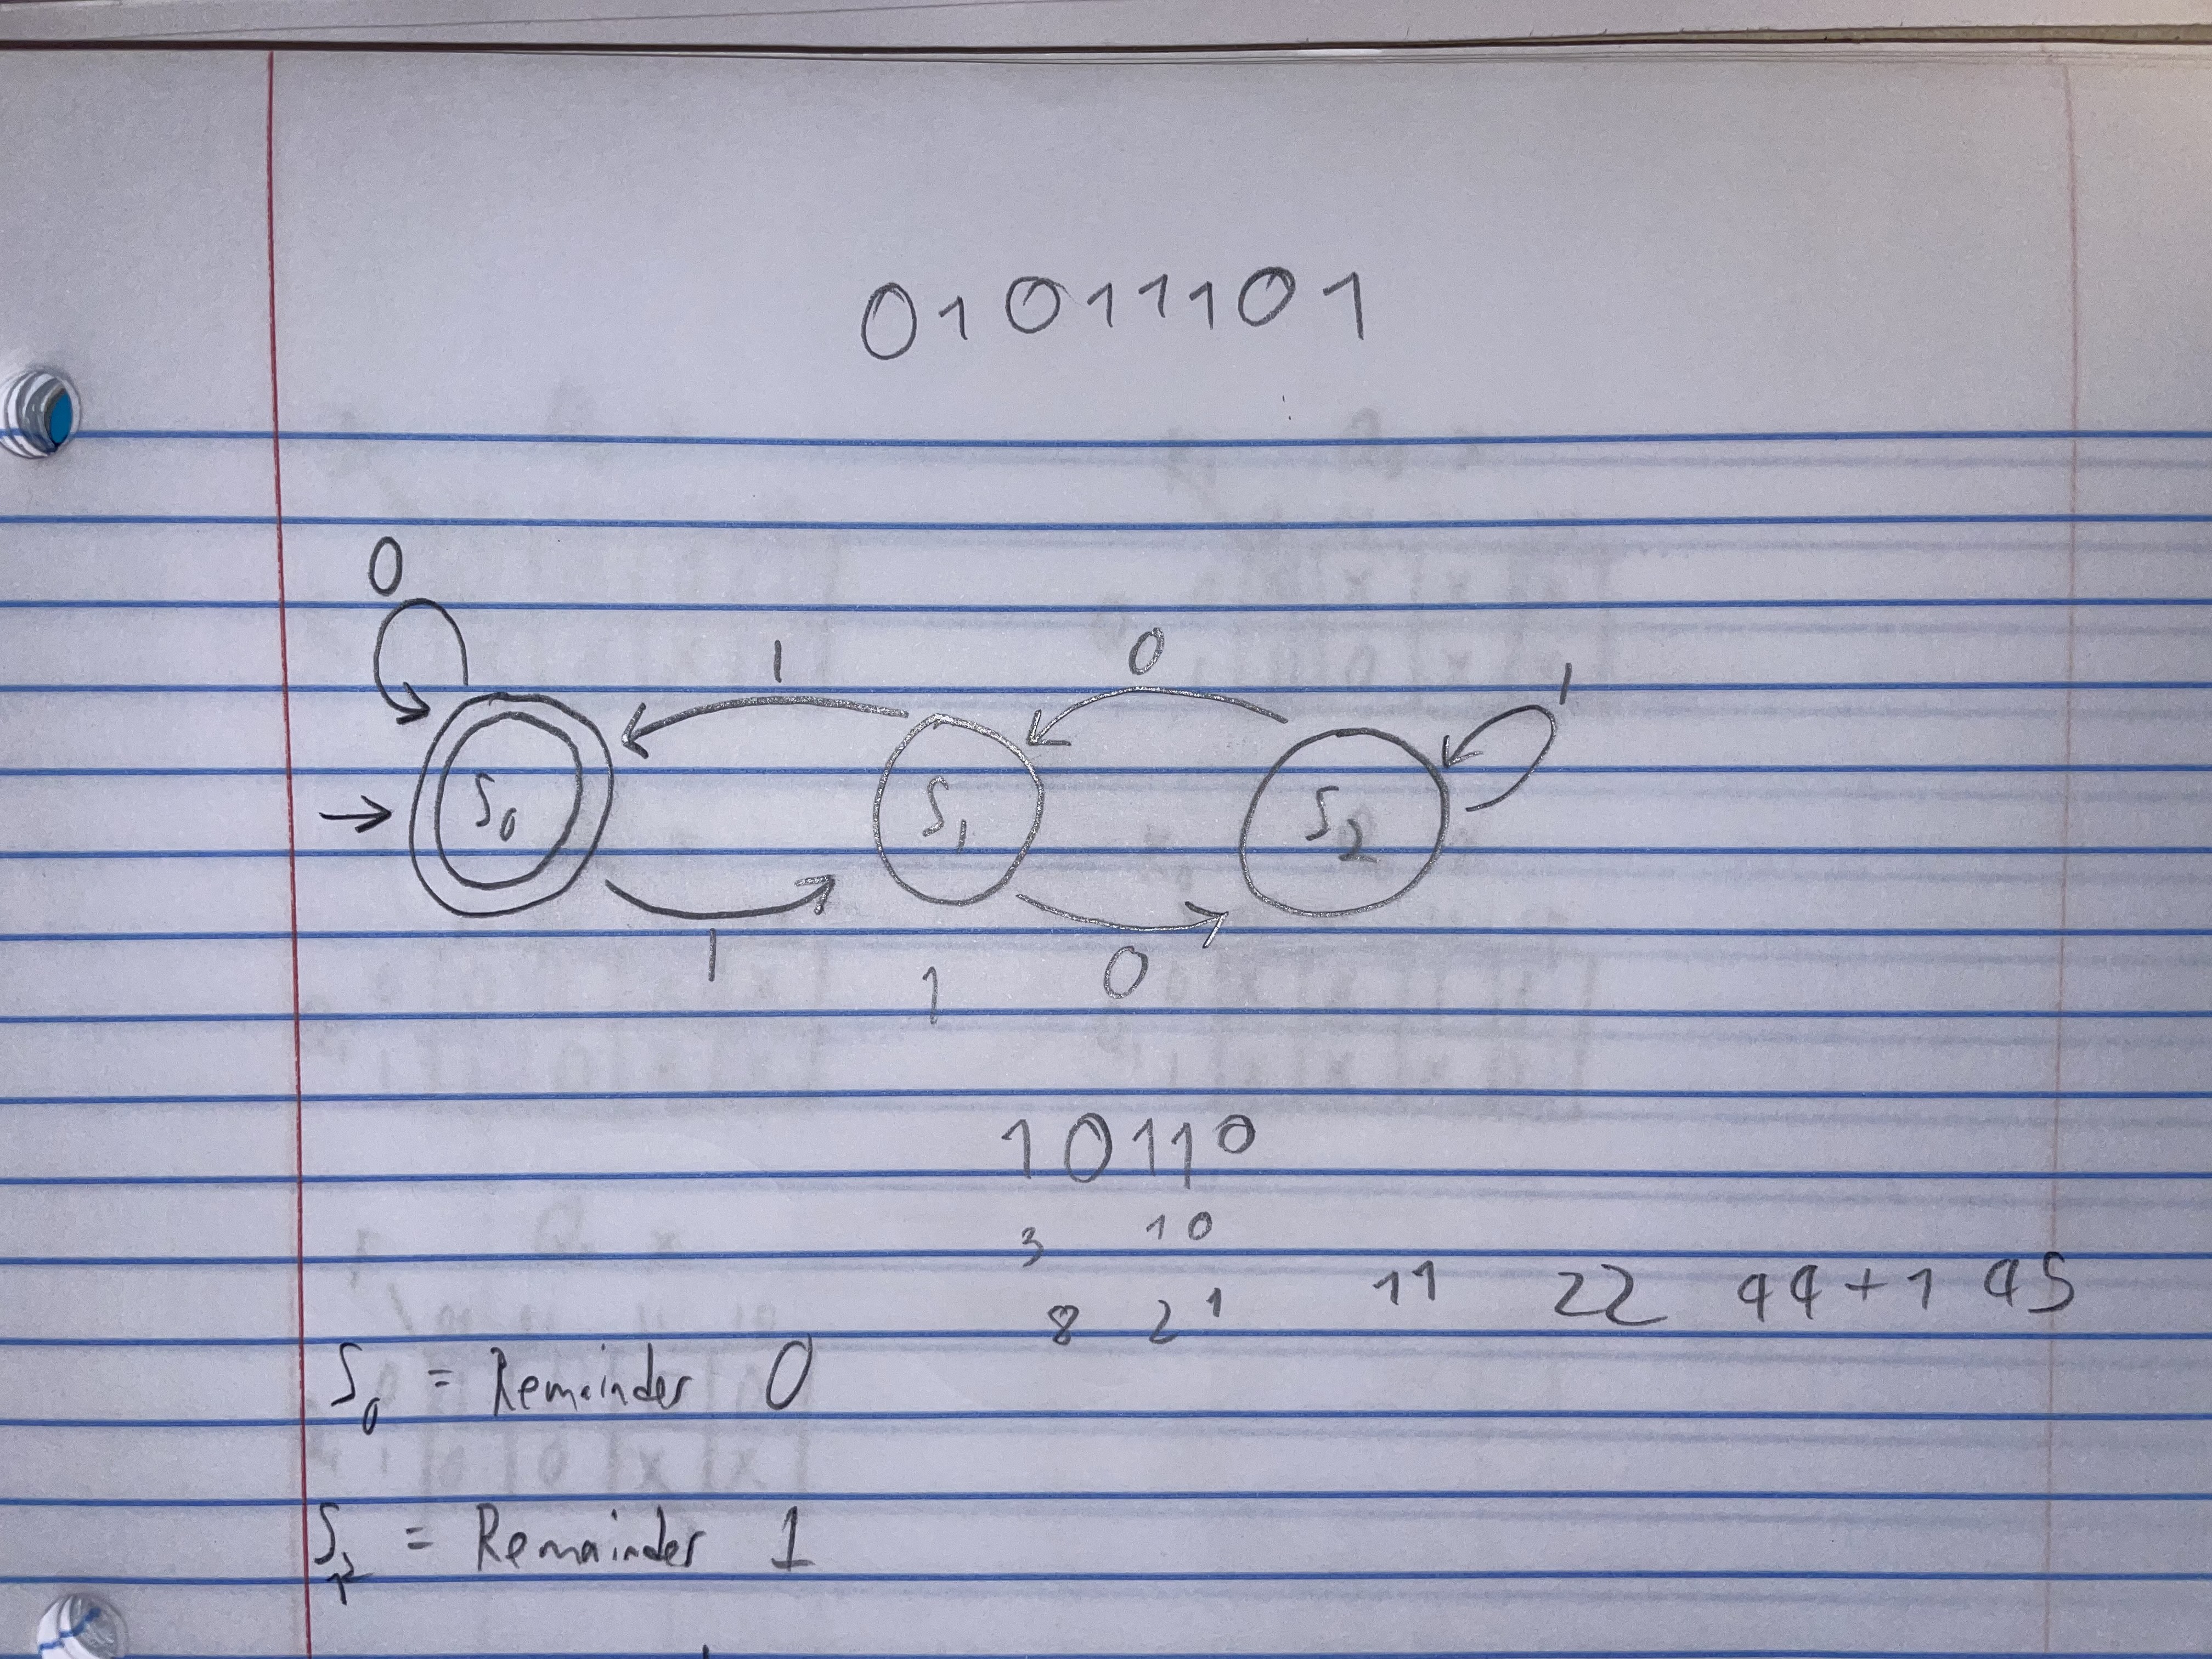 01011101
0
1 0 1
S0 S1 S2
1 1 0
10110
3 10
8 21 11 22 44+1 45
S0 = Remainder 0
= Remainder 1